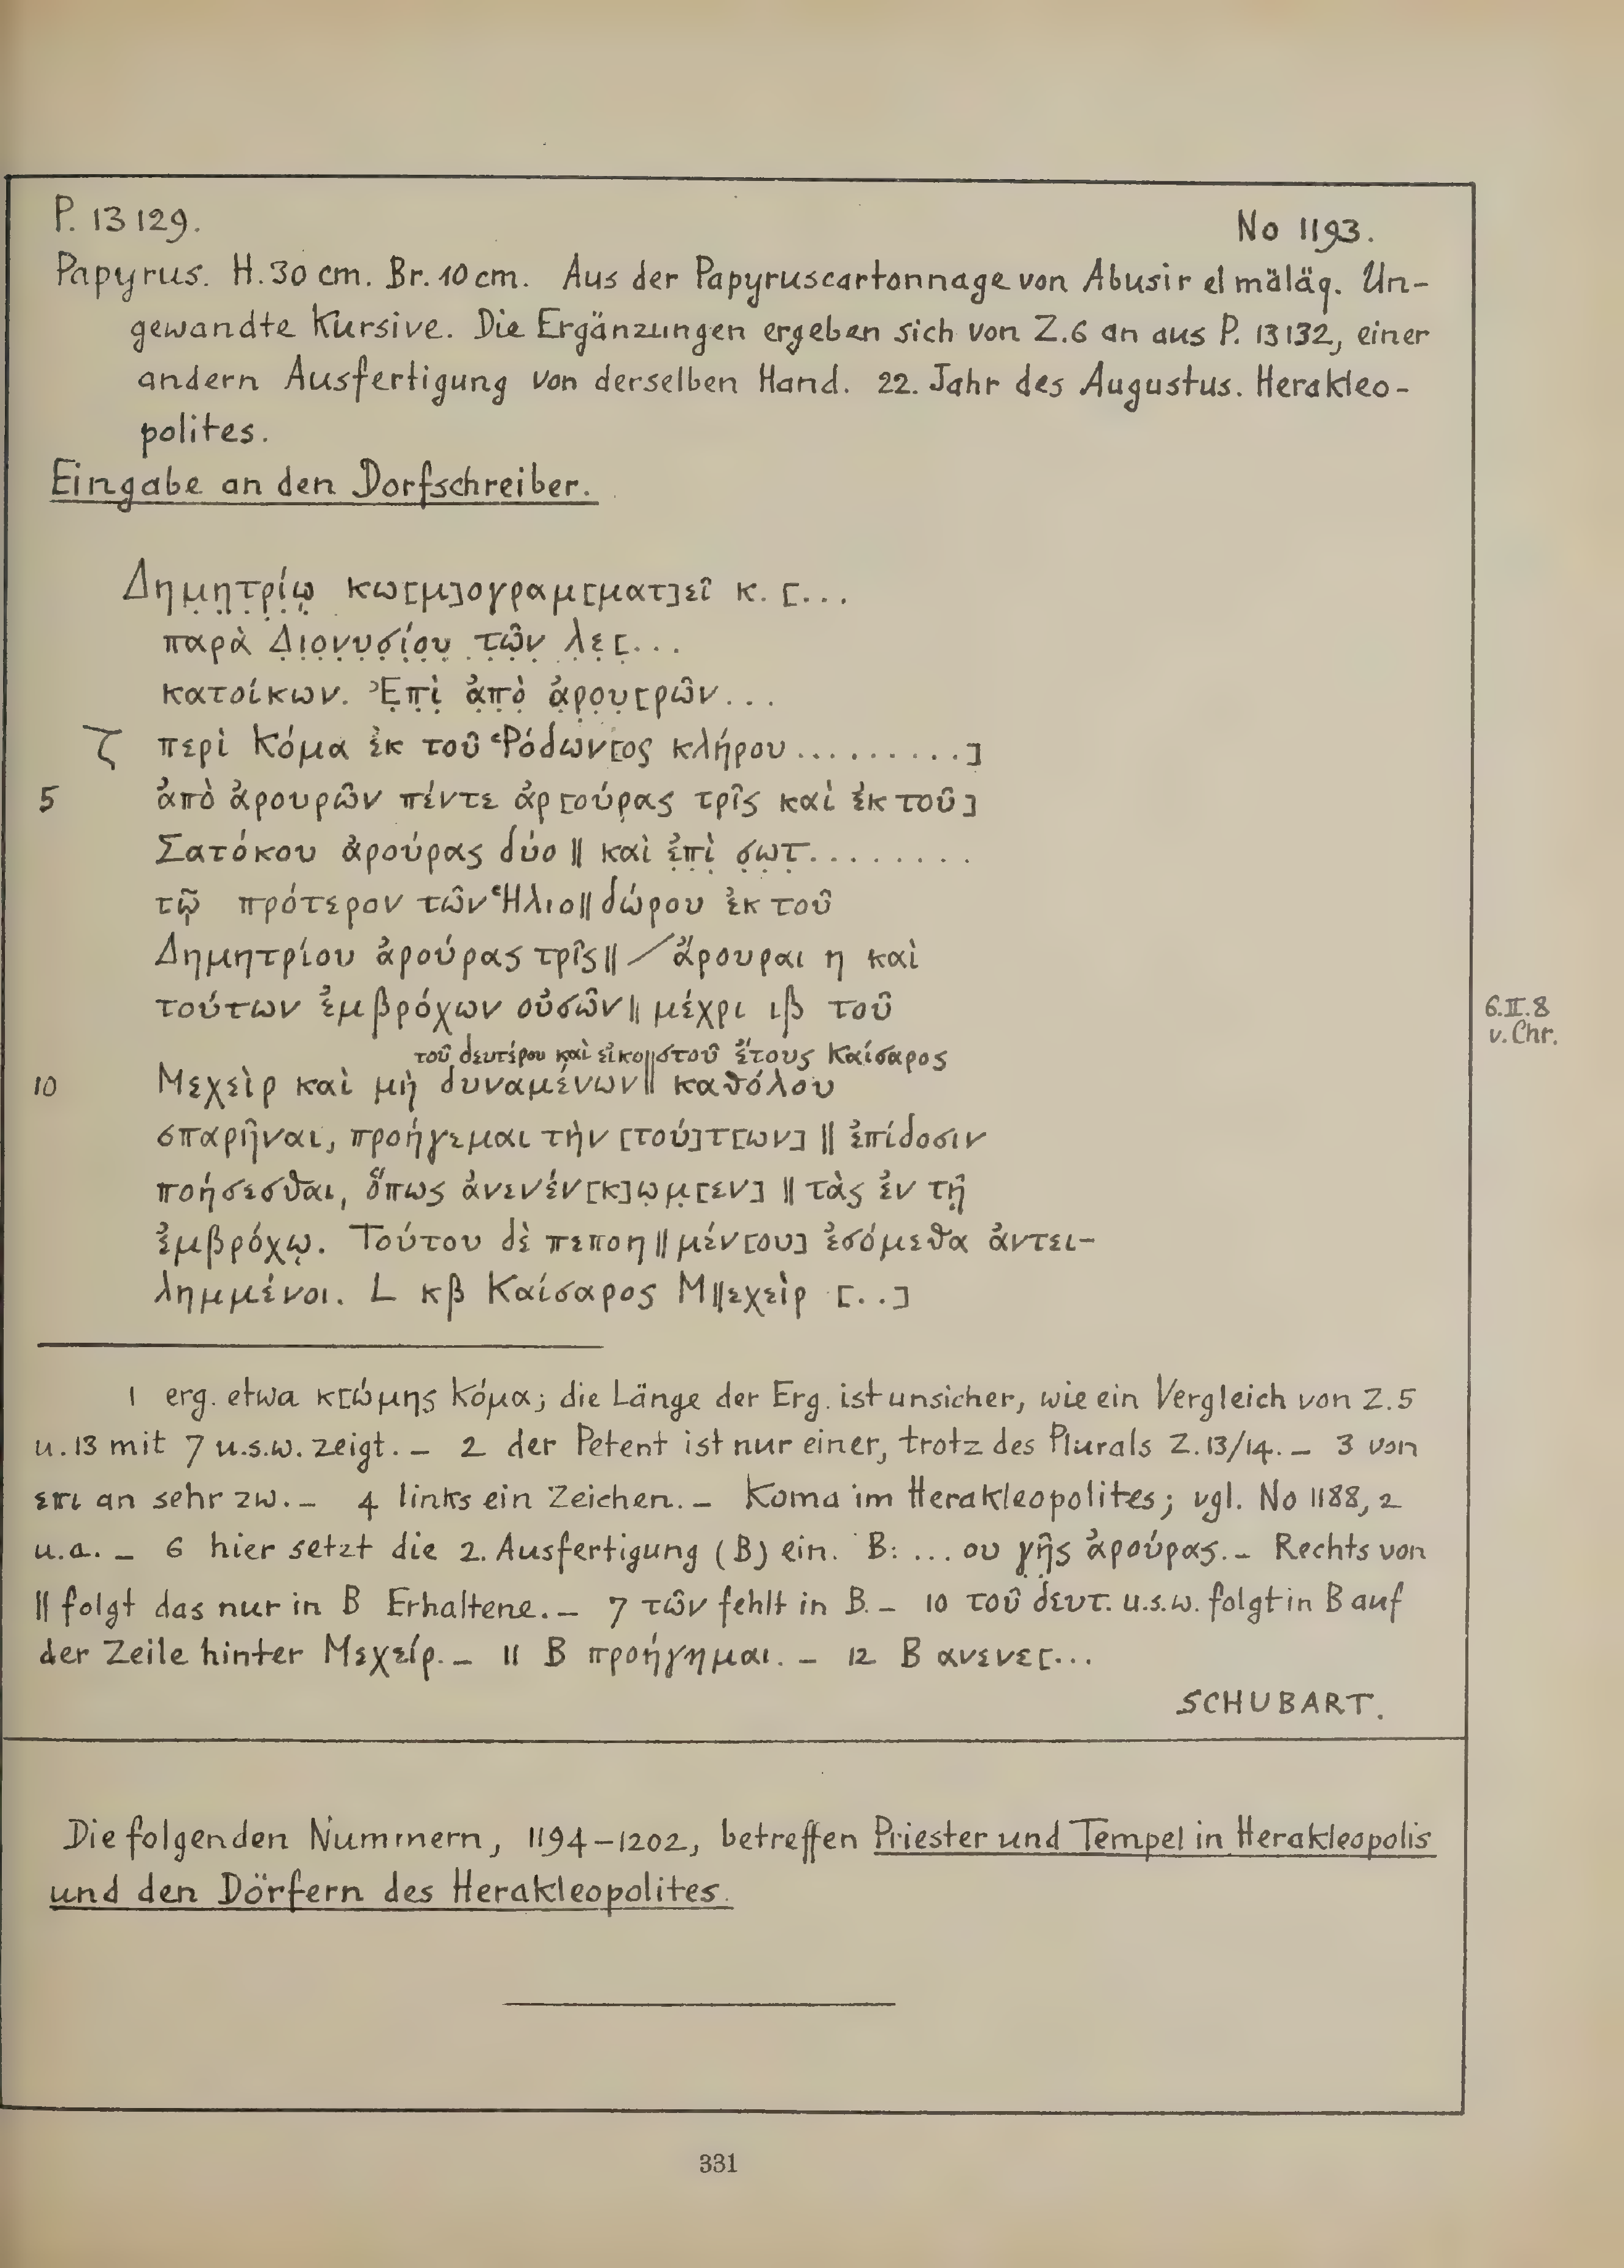 P. 13129. No 1193.
Papyrus. H. 30 cm. Br. 10 cm. Aus der Papyruscartonnage von Abusir el mäläq. Un-
gewandte Kursive. Die Ergänzungen ergeben sich von Z. 6 an aus P. 13132, einer
andern Ausfertigung von derselben Hand. 22. Jahr des Augustus. Herakleo-
polites.
Eingabe an den Dorfschreiber.
Δη̣μ̣η̣τ̣ρ̣ί̣ῳ̣ κω[μ]ογραμ[ματ]εῖ κ. [...
παρὰ Δ̣ι̣ο̣ν̣υ̣σ̣ί̣ο̣υ̣ τ̣ῶ̣ν̣ λ̣ε̣[...
κατοίκων. Ἐ̣π̣ὶ̣ ἀ̣π̣ὸ̣ ἀ̣ρ̣ο̣υ̣[ρῶν...
ζ περὶ Κόμα ἐκ τοῦ Ῥόδων[ος κλήρου .........]
5 ἀπὸ ἀρουρῶν πέντε ἀρ[ούρας τρῖς καὶ ἐκ τοῦ]
Σατόκου ἀρούρας δύο || καὶ ἐ̣π̣ὶ̣ σ̣ω̣τ̣........
τῷ πρότερον τῶν Ἡλιο||δώρου ἐκ τοῦ
Δημητρίου ἀρούρας τρῖς || / ἄρουραι η καὶ
τούτων ἐμβρόχων οὐσῶν || μέχρι ιβ τοῦ
6.II.8
v. Chr.
τοῦ δευτέρου καὶ εἰκο||στοῦ ἔτους Καίσαρος
10 Μεχεὶρ καὶ μὴ δυναμένων || καθόλου
σπαρῆναι, προήγεμαι τὴν [τού]τ[ων] || ἐπίδοσιν
ποήσεσθαι, ὅπως ἀνενέν[κ]ω̣μ̣[εν] || τὰς ἐν τῇ
ἐμβρόχῳ. Τούτου δὲ πεποη||μέν[ου] ἐσόμεθα ἀντει-
λημμένοι. L κβ Καίσαρος Μ||εχεὶρ [..]
1 erg. etwa κ[ώμης Κόμα; die Länge der Erg. ist unsicher, wie ein Vergleich von Z. 5
u. 13 mit 7 u.s.w. zeigt. – 2 der Petent ist nur einer, trotz des Plurals Z. 13/14. – 3 von
επι an sehr zw. – 4 links ein Zeichen. – Koma im Herakleopolites; vgl. No 1188, 2
u.a. – 6 hier setzt die 2. Ausfertigung (B) ein. B: ... ου γ̣ῆ̣ς ἀρούρας. – Rechts von
|| folgt das nur in B Erhaltene. – 7 τῶν fehlt in B. – 10 τοῦ δευτ. u.s.w. folgt in B auf
der Zeile hinter Μεχείρ. – 11 B προήγημαι. – 12 B ανενε[...
SCHUBART.
Die folgenden Nummern, 1194–1202, betreffen Priester und Tempel in Herakleopolis
und den Dörfern des Herakleopolites.
331